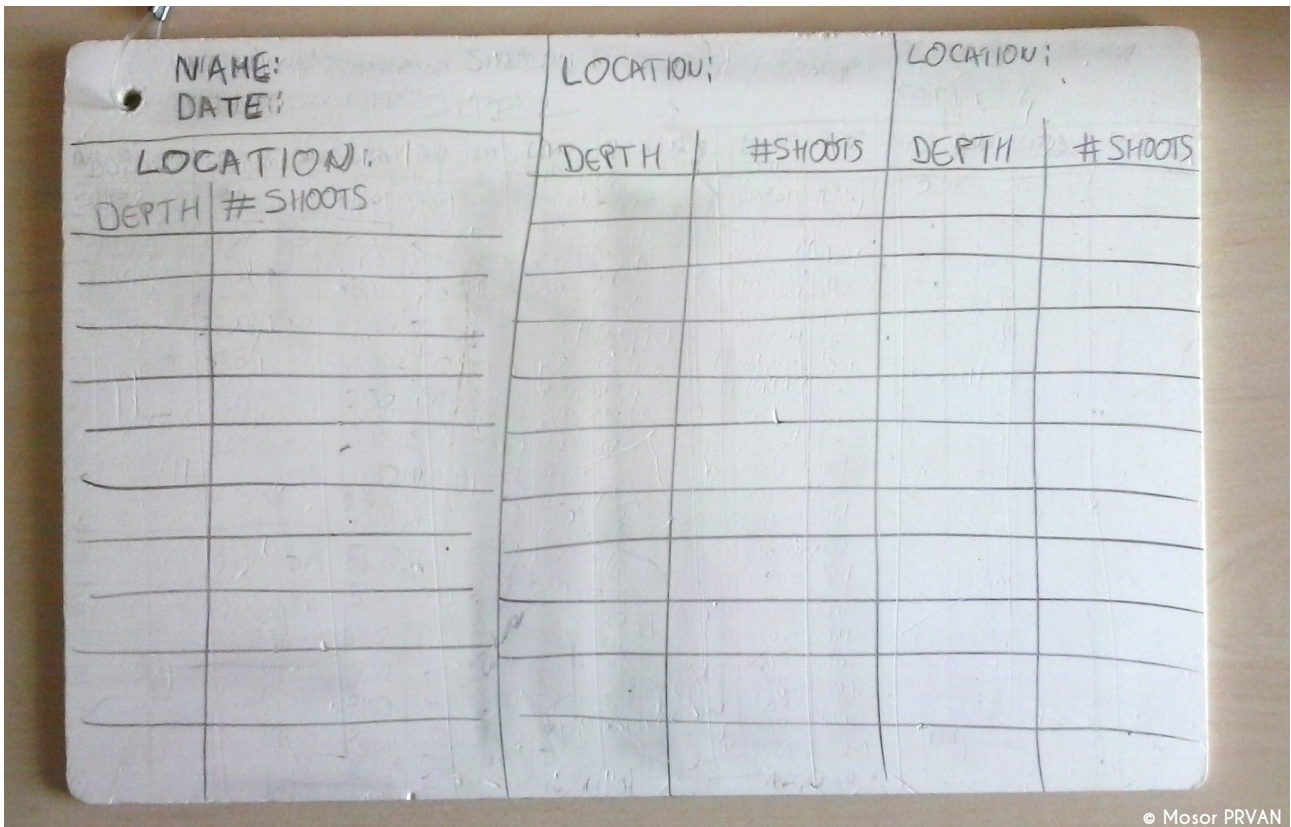 NAME:
DATE:
LOCATION:
DEPTH # SHOOTS
LOCATION:
DEPTH #SHOOTS
LOCATION:
DEPTH # SHOOTS
© Mosor PRVAN